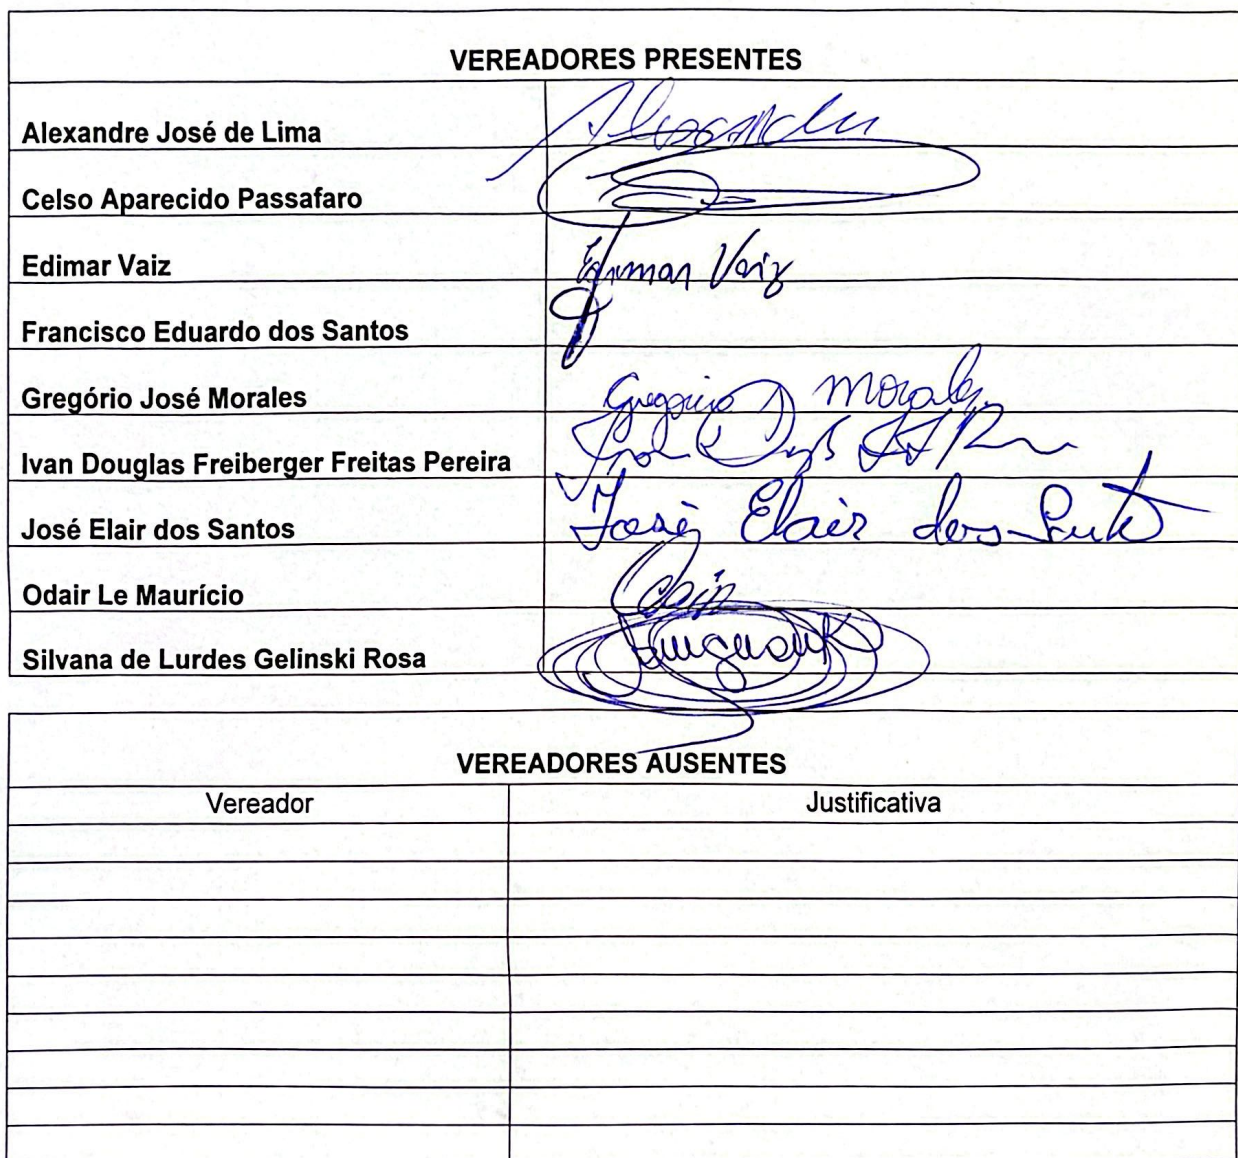 VEREADORES PRESENTES
Alexandre José de Lima Alexandre
Celso Aparecido Passafaro
Edimar Vaiz Edimar Vaiz
Francisco Eduardo dos Santos
Gregório José Morales Gregorio J Morales
Ivan Douglas Freiberger Freitas Pereira
José Elair dos Santos José Elair dos
Odair Le Maurício Odair
Silvana de Lurdes Gelinski Rosa
VEREADORES AUSENTES
Vereador Justificativa